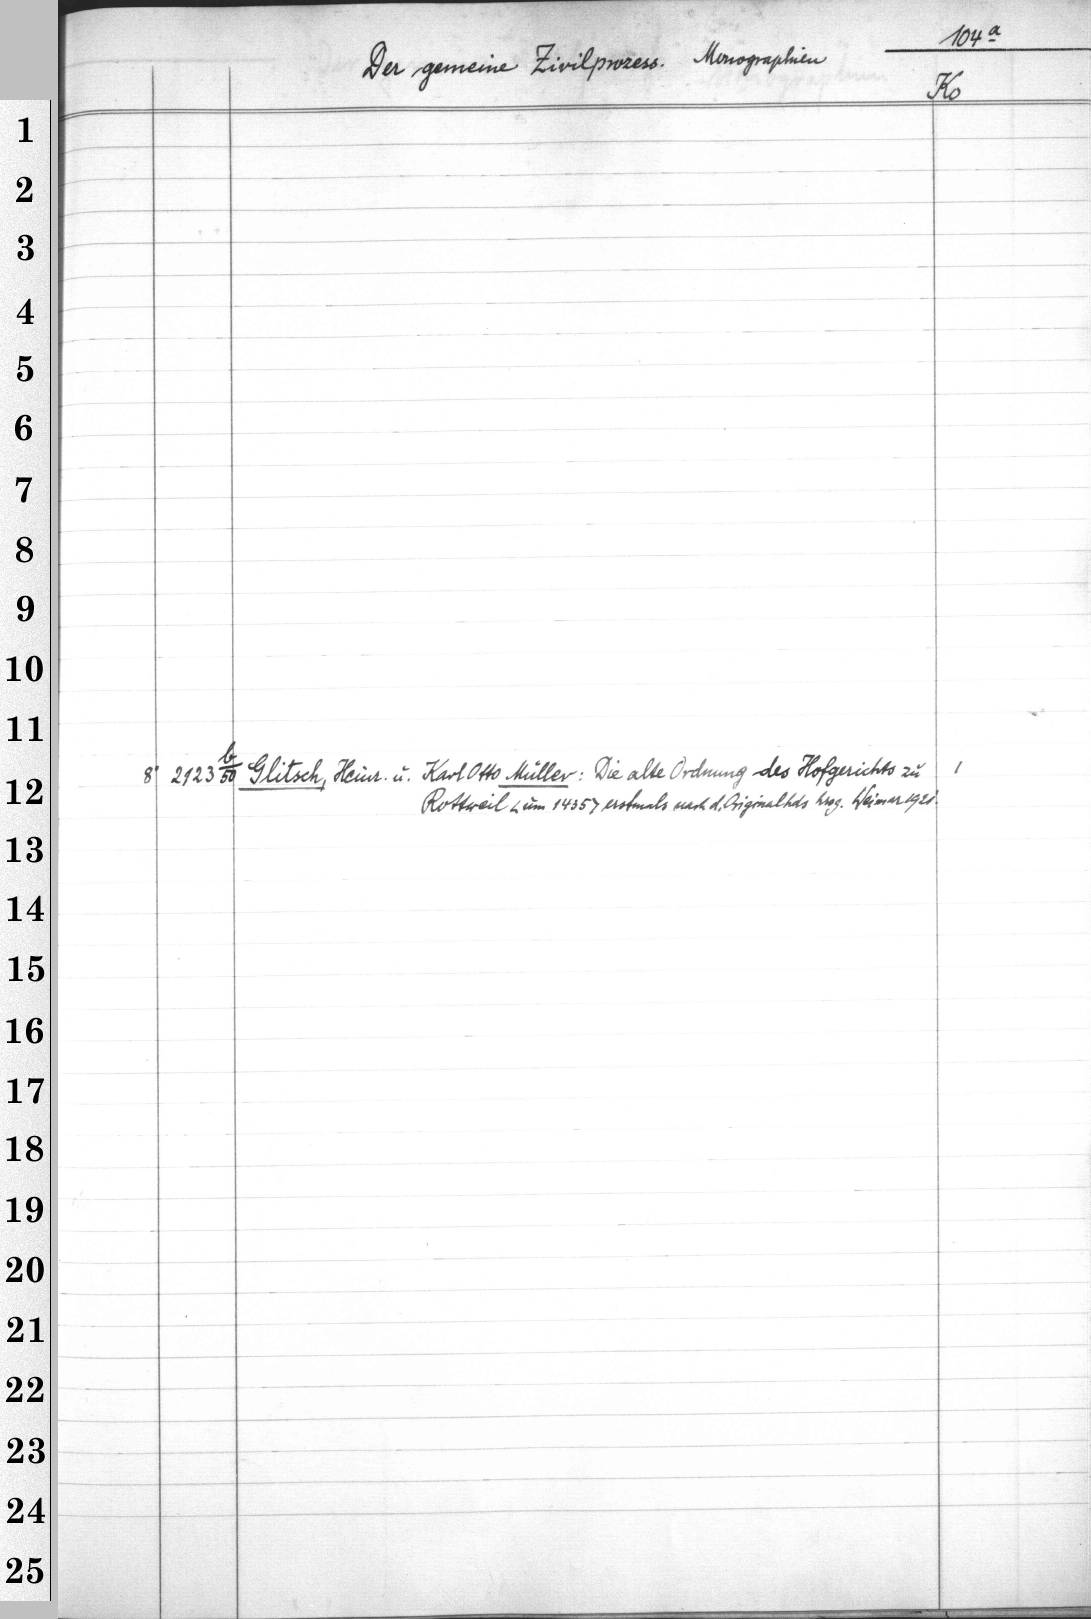 104 a
Der gemeine Zivilprozess. Monographien
Ko
1
2
3
4
5
6
7
8
9
10
11
8° 2923 b/50 Glitsch, Heinr. u. Karl Otto Müller: Die alte Ordnung des Hofgerichts zu 1
12
Rottweil <um 1435> erstmals nach d. Originalhds hrsg. Weimar 1921.
13
14
15
16
17
18
19
20
21
22
23
24
25